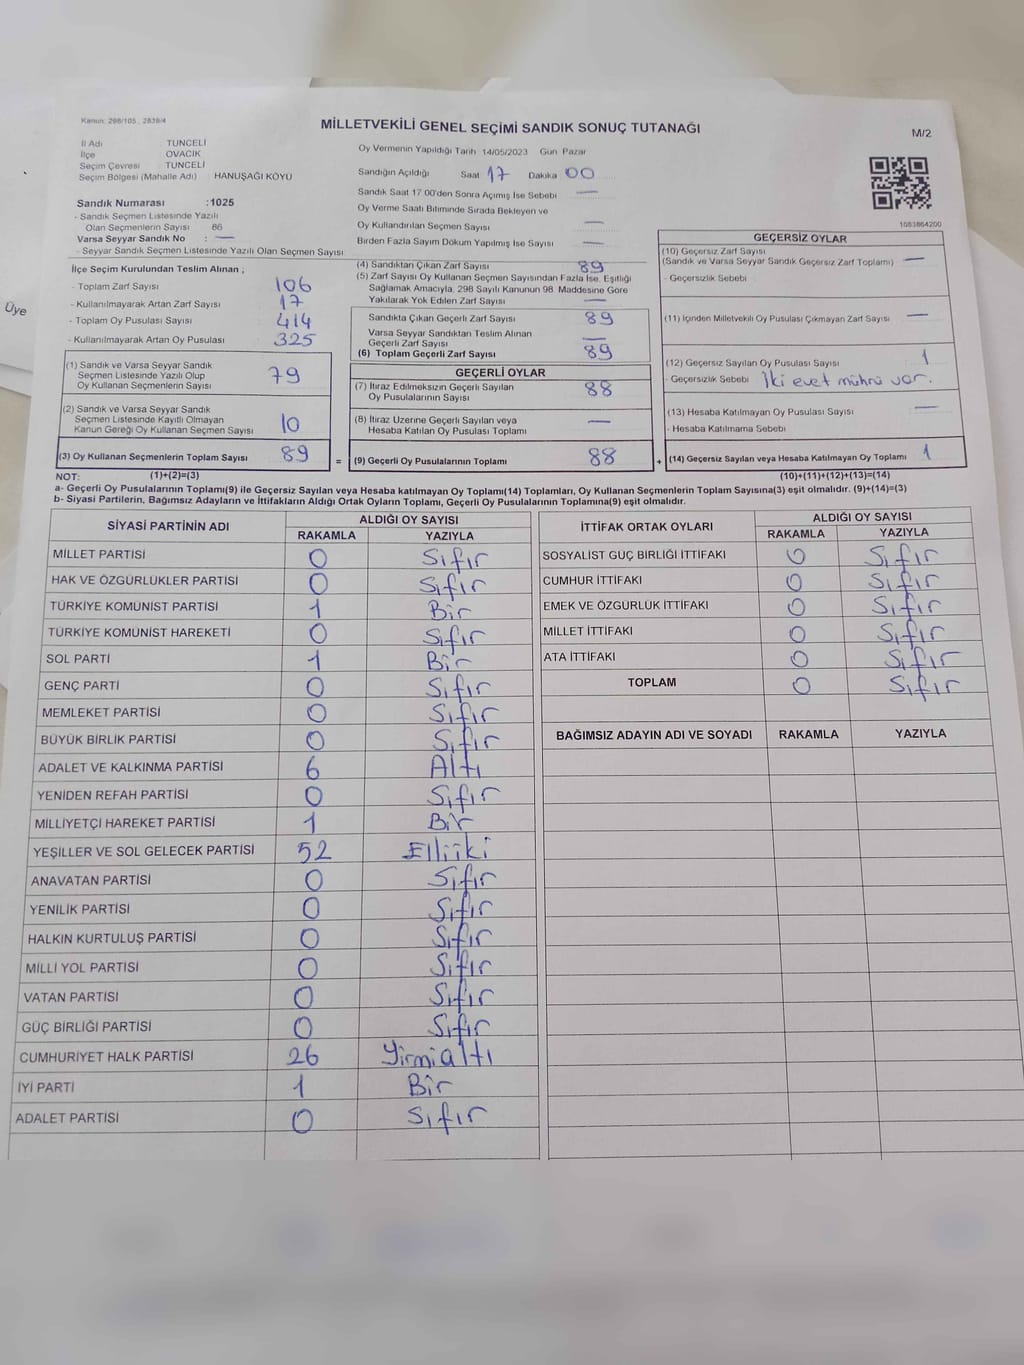 Kanun: 298/105 , 2839/4
MİLLETVEKİLİ GENEL SEÇİMİ SANDIK SONUÇ TUTANAĞI
M/2
İl Adı TUNCELİ
İlçe OVACIK
Seçim Çevresi TUNCELİ
Seçim Bölgesi (Mahalle Adı) HANUŞAĞI KÖYÜ
Sandık Numarası :1025
- Sandık Seçmen Listesinde Yazılı
Olan Seçmenlerin Sayısı 86
Varsa Seyyar Sandık No : —
- Seyyar Sandık Seçmen Listesinde Yazılı Olan Seçmen Sayısı
İlçe Seçim Kurulundan Teslim Alınan ;
- Toplam Zarf Sayısı 106
- Kullanılmayarak Artan Zarf Sayısı 17
- Toplam Oy Pusulası Sayısı 414
- Kullanılmayarak Artan Oy Pusulası 325
(1) Sandık ve Varsa Seyyar Sandık
Seçmen Listesinde Yazılı Olup
Oy Kullanan Seçmenlerin Sayısı 79
(2) Sandık ve Varsa Seyyar Sandık
Seçmen Listesinde Kayıtlı Olmayan
Kanun Gereği Oy Kullanan Seçmen Sayısı 10
(3) Oy Kullanan Seçmenlerin Toplam Sayısı 89 =
Oy Vermenin Yapıldığı Tarih 14/05/2023 Gün Pazar
Sandığın Açıldığı Saat 17 Dakika 00
Sandık Saat 17:00'den Sonra Açılmış İse Sebebi —
Oy Verme Saati Bitiminde Sırada Bekleyen ve
Oy Kullandırılan Seçmen Sayısı —
Birden Fazla Sayım Döküm Yapılmış İse Sayısı —
(4) Sandıktan Çıkan Zarf Sayısı 89
(5) Zarf Sayısı Oy Kullanan Seçmen Sayısından Fazla İse, Eşitliği
Sağlamak Amacıyla, 298 Sayılı Kanunun 98. Maddesine Göre
Yakılarak Yok Edilen Zarf Sayısı —
Sandıkta Çıkan Geçerli Zarf Sayısı 89
Varsa Seyyar Sandıktan Teslim Alınan
Geçerli Zarf Sayısı —
(6) Toplam Geçerli Zarf Sayısı 89
GEÇERLİ OYLAR
(7) İtiraz Edilmeksizin Geçerli Sayılan
Oy Pusulalarının Sayısı 88
(8) İtiraz Üzerine Geçerli Sayılan veya
Hesaba Katılan Oy Pusulası Toplamı —
(9) Geçerli Oy Pusulalarının Toplamı 88 +
1083864200
GEÇERSİZ OYLAR
(10) Geçersiz Zarf Sayısı
(Sandık ve Varsa Seyyar Sandık Geçersiz Zarf Toplamı) —
- Geçersizlik Sebebi
(11) İçinden Milletvekili Oy Pusulası Çıkmayan Zarf Sayısı —
(12) Geçersiz Sayılan Oy Pusulası Sayısı 1
- Geçersizlik Sebebi İki evet mührü var.
(13) Hesaba Katılmayan Oy Pusulası Sayısı —
- Hesaba Katılmama Sebebi
(14) Geçersiz Sayılan veya Hesaba Katılmayan Oy Toplamı 1
NOT: (1)+(2)=(3) (10)+(11)+(12)+(13)=(14)
a- Geçerli Oy Pusulalarının Toplamı(9) ile Geçersiz Sayılan veya Hesaba katılmayan Oy Toplamı(14) Toplamları, Oy Kullanan Seçmenlerin Toplam Sayısına(3) eşit olmalıdır. (9)+(14)=(3)
b- Siyasi Partilerin, Bağımsız Adayların ve İttifakların Aldığı Ortak Oyların Toplamı, Geçerli Oy Pusulalarının Toplamına(9) eşit olmalıdır.
SİYASİ PARTİNİN ADI ALDIĞI OY SAYISI
RAKAMLA YAZIYLA
MİLLET PARTİSİ 0 Sıfır
HAK VE ÖZGÜRLÜKLER PARTİSİ 0 Sıfır
TÜRKİYE KOMÜNİST PARTİSİ 1 Bir
TÜRKİYE KOMÜNİST HAREKETİ 0 Sıfır
SOL PARTİ 1 Bir
GENÇ PARTİ 0 Sıfır
MEMLEKET PARTİSİ 0 Sıfır
BÜYÜK BİRLİK PARTİSİ 0 Sıfır
ADALET VE KALKINMA PARTİSİ 6 Altı
YENİDEN REFAH PARTİSİ 0 Sıfır
MİLLİYETÇİ HAREKET PARTİSİ 1 Bir
YEŞİLLER VE SOL GELECEK PARTİSİ 52 Elliiki
ANAVATAN PARTİSİ 0 Sıfır
YENİLİK PARTİSİ 0 Sıfır
HALKIN KURTULUŞ PARTİSİ 0 Sıfır
MİLLİ YOL PARTİSİ 0 Sıfır
VATAN PARTİSİ 0 Sıfır
GÜÇ BİRLİĞİ PARTİSİ 0 Sıfır
CUMHURİYET HALK PARTİSİ 26 Yirmialtı
İYİ PARTİ 1 Bir
ADALET PARTİSİ 0 Sıfır
İTTİFAK ORTAK OYLARI ALDIĞI OY SAYISI
RAKAMLA YAZIYLA
SOSYALİST GÜÇ BİRLİĞİ İTTİFAKI 0 Sıfır
CUMHUR İTTİFAKI 0 Sıfır
EMEK VE ÖZGÜRLÜK İTTİFAKI 0 Sıfır
MİLLET İTTİFAKI 0 Sıfır
ATA İTTİFAKI 0 Sıfır
TOPLAM 0 Sıfır
BAĞIMSIZ ADAYIN ADI VE SOYADI RAKAMLA YAZIYLA
Üye